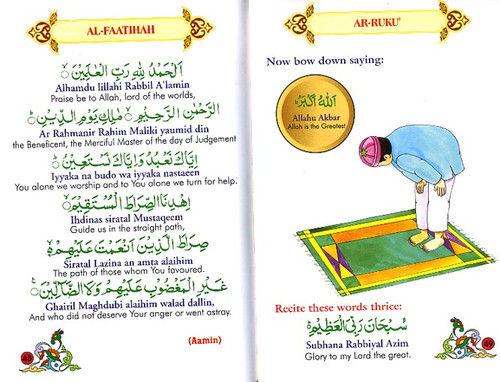 AL-FAATIHAH
اَلْحَمْدُ لِلّٰهِ رَبِّ الْعٰلَمِيْنَ
Alhamdu lillahi Rabbil A'lamin
Praise be to Allah, lord of the worlds,
الرَّحْمٰنِ الرَّحِيْمِ مٰلِكِ يَوْمِ الدِّيْنِ
Ar Rahmanir Rahim Maliki yaumid din
the Beneficent, the Merciful Master of the day of Judgement
اِيَّاكَ نَعْبُدُ وَاِيَّاكَ نَسْتَعِيْنُ
Iyyaka na budo wa iyyaka nastaeen
You alone we worship and to You alone we turn for help.
اِهْدِنَا الصِّرَاطَ الْمُسْتَقِيْمَ
Ihdinas siratal Mustaqeem
Guide us in the straight path,
صِرَاطَ الَّذِيْنَ اَنْعَمْتَ عَلَيْهِمْ
Siratal Lazina an amta alaihim
The path of those whom You favoured.
غَيْرِ الْمَغْضُوْبِ عَلَيْهِمْ وَلَا الضَّآلِّيْنَ
Ghairil Maghdubi alaihim walad dallin,
And who did not deserve Your anger or went astray.
(Aamin)
48
AR-RUKU'
Now bow down saying:
اَللّٰهُ اَكْبَرُ
Allahu Akbar
Allah is the Greatest
Recite these words thrice:
سُبْحَانَ رَبِّيَ الْعَظِيْمِ
Subhana Rabbiyal Azim
Glory to my Lord the great.
49